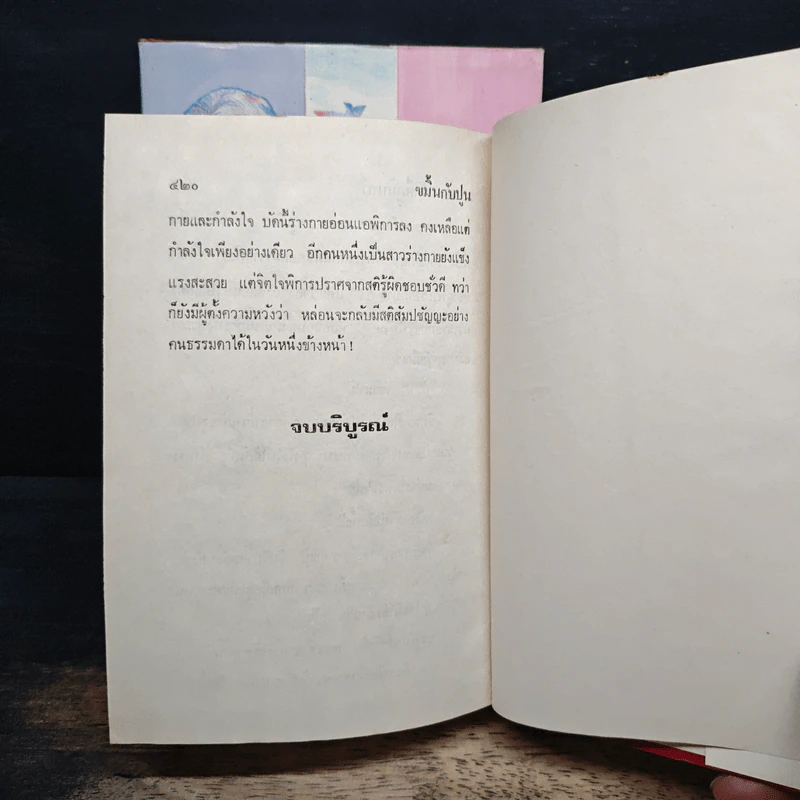 ๔๒๐
ขมิ้นกับปูน
กายและกำลังใจ บัดนี้ร่างกายอ่อนแอพิการลง คงเหลือแต่
กำลังใจเพียงอย่างเดียว อีกคนหนึ่งเป็นสาวร่างกายยังแข็ง
แรงสะสวย แต่จิตใจพิการปราศจากสติรู้ผิดชอบชั่วดี ทว่า
ก็ยังมีผู้ตั้งความหวังว่า หล่อนจะกลับมีสติสัมปชัญญะอย่าง
คนธรรมดาได้ในวันหนึ่งข้างหน้า!
จบบริบูรณ์